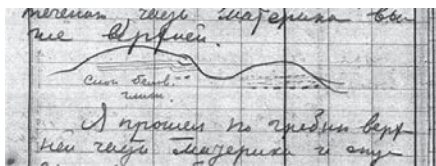 течении часть материка вы-
ше верхней.
Слои белов.
глины.
Я прошел по гребню верх-
ней части материка и